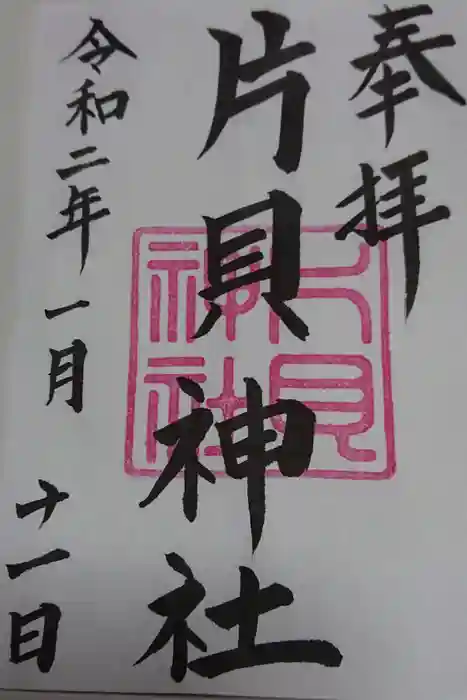 奉拝
片貝神社
片貝神社
令和二年一月十一日